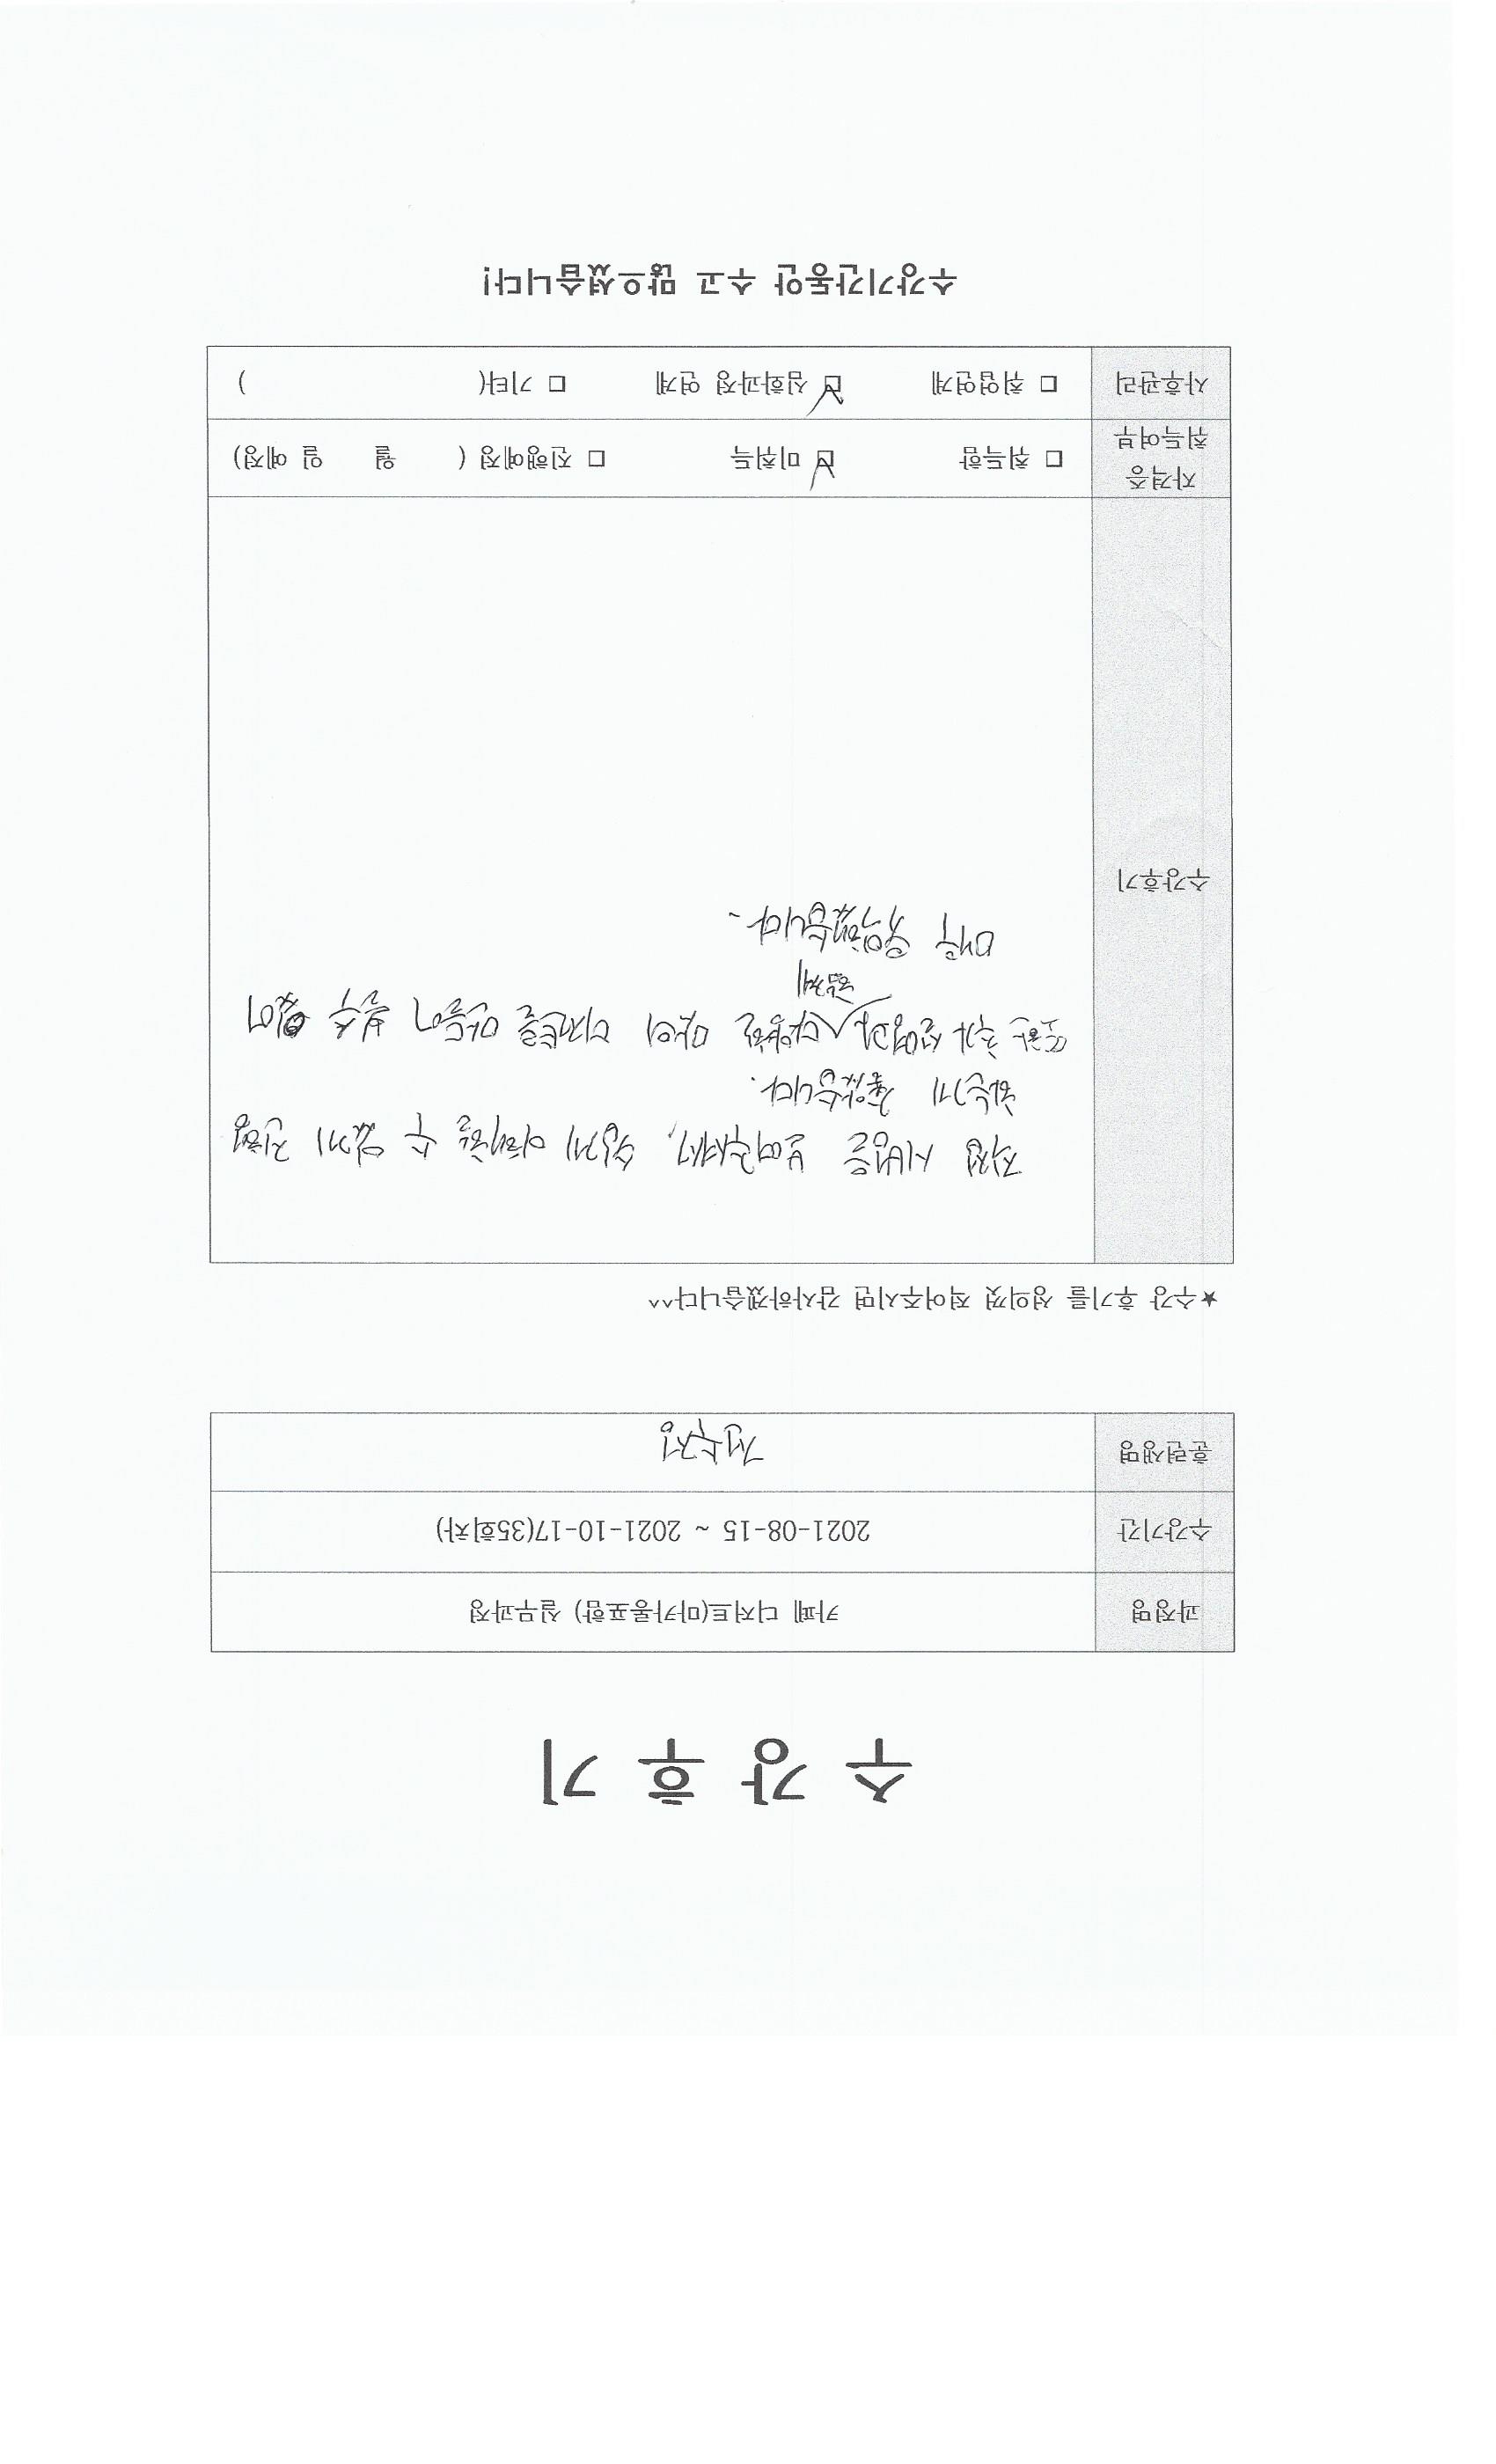 수 강 후 기
과정명 카페 디저트(마카롱포함) 실무과정
수강기간 2021-08-15 ~ 2021-10-17(35회차)
훈련생명 김수정
★수강 후기를 성의껏 적어주시면 감사하겠습니다^^
수강후기
직접 시범을 보여주셔서, 쉽게 이해할 수 있게 진행
해주기 좋았습니다.
또한 추가 수업과 다양한 마지 디저트를 만들어 볼수 있어
특강
매우 유익했습니다.
자격증
취득여부 □ 취득함 □ 미취득 □ 진행예정 ( 월 일 예정)
사후관리 □ 취업연계 □ 심화과정 연계 □ 기타( )
수강기간동안 수고 많으셨습니다!